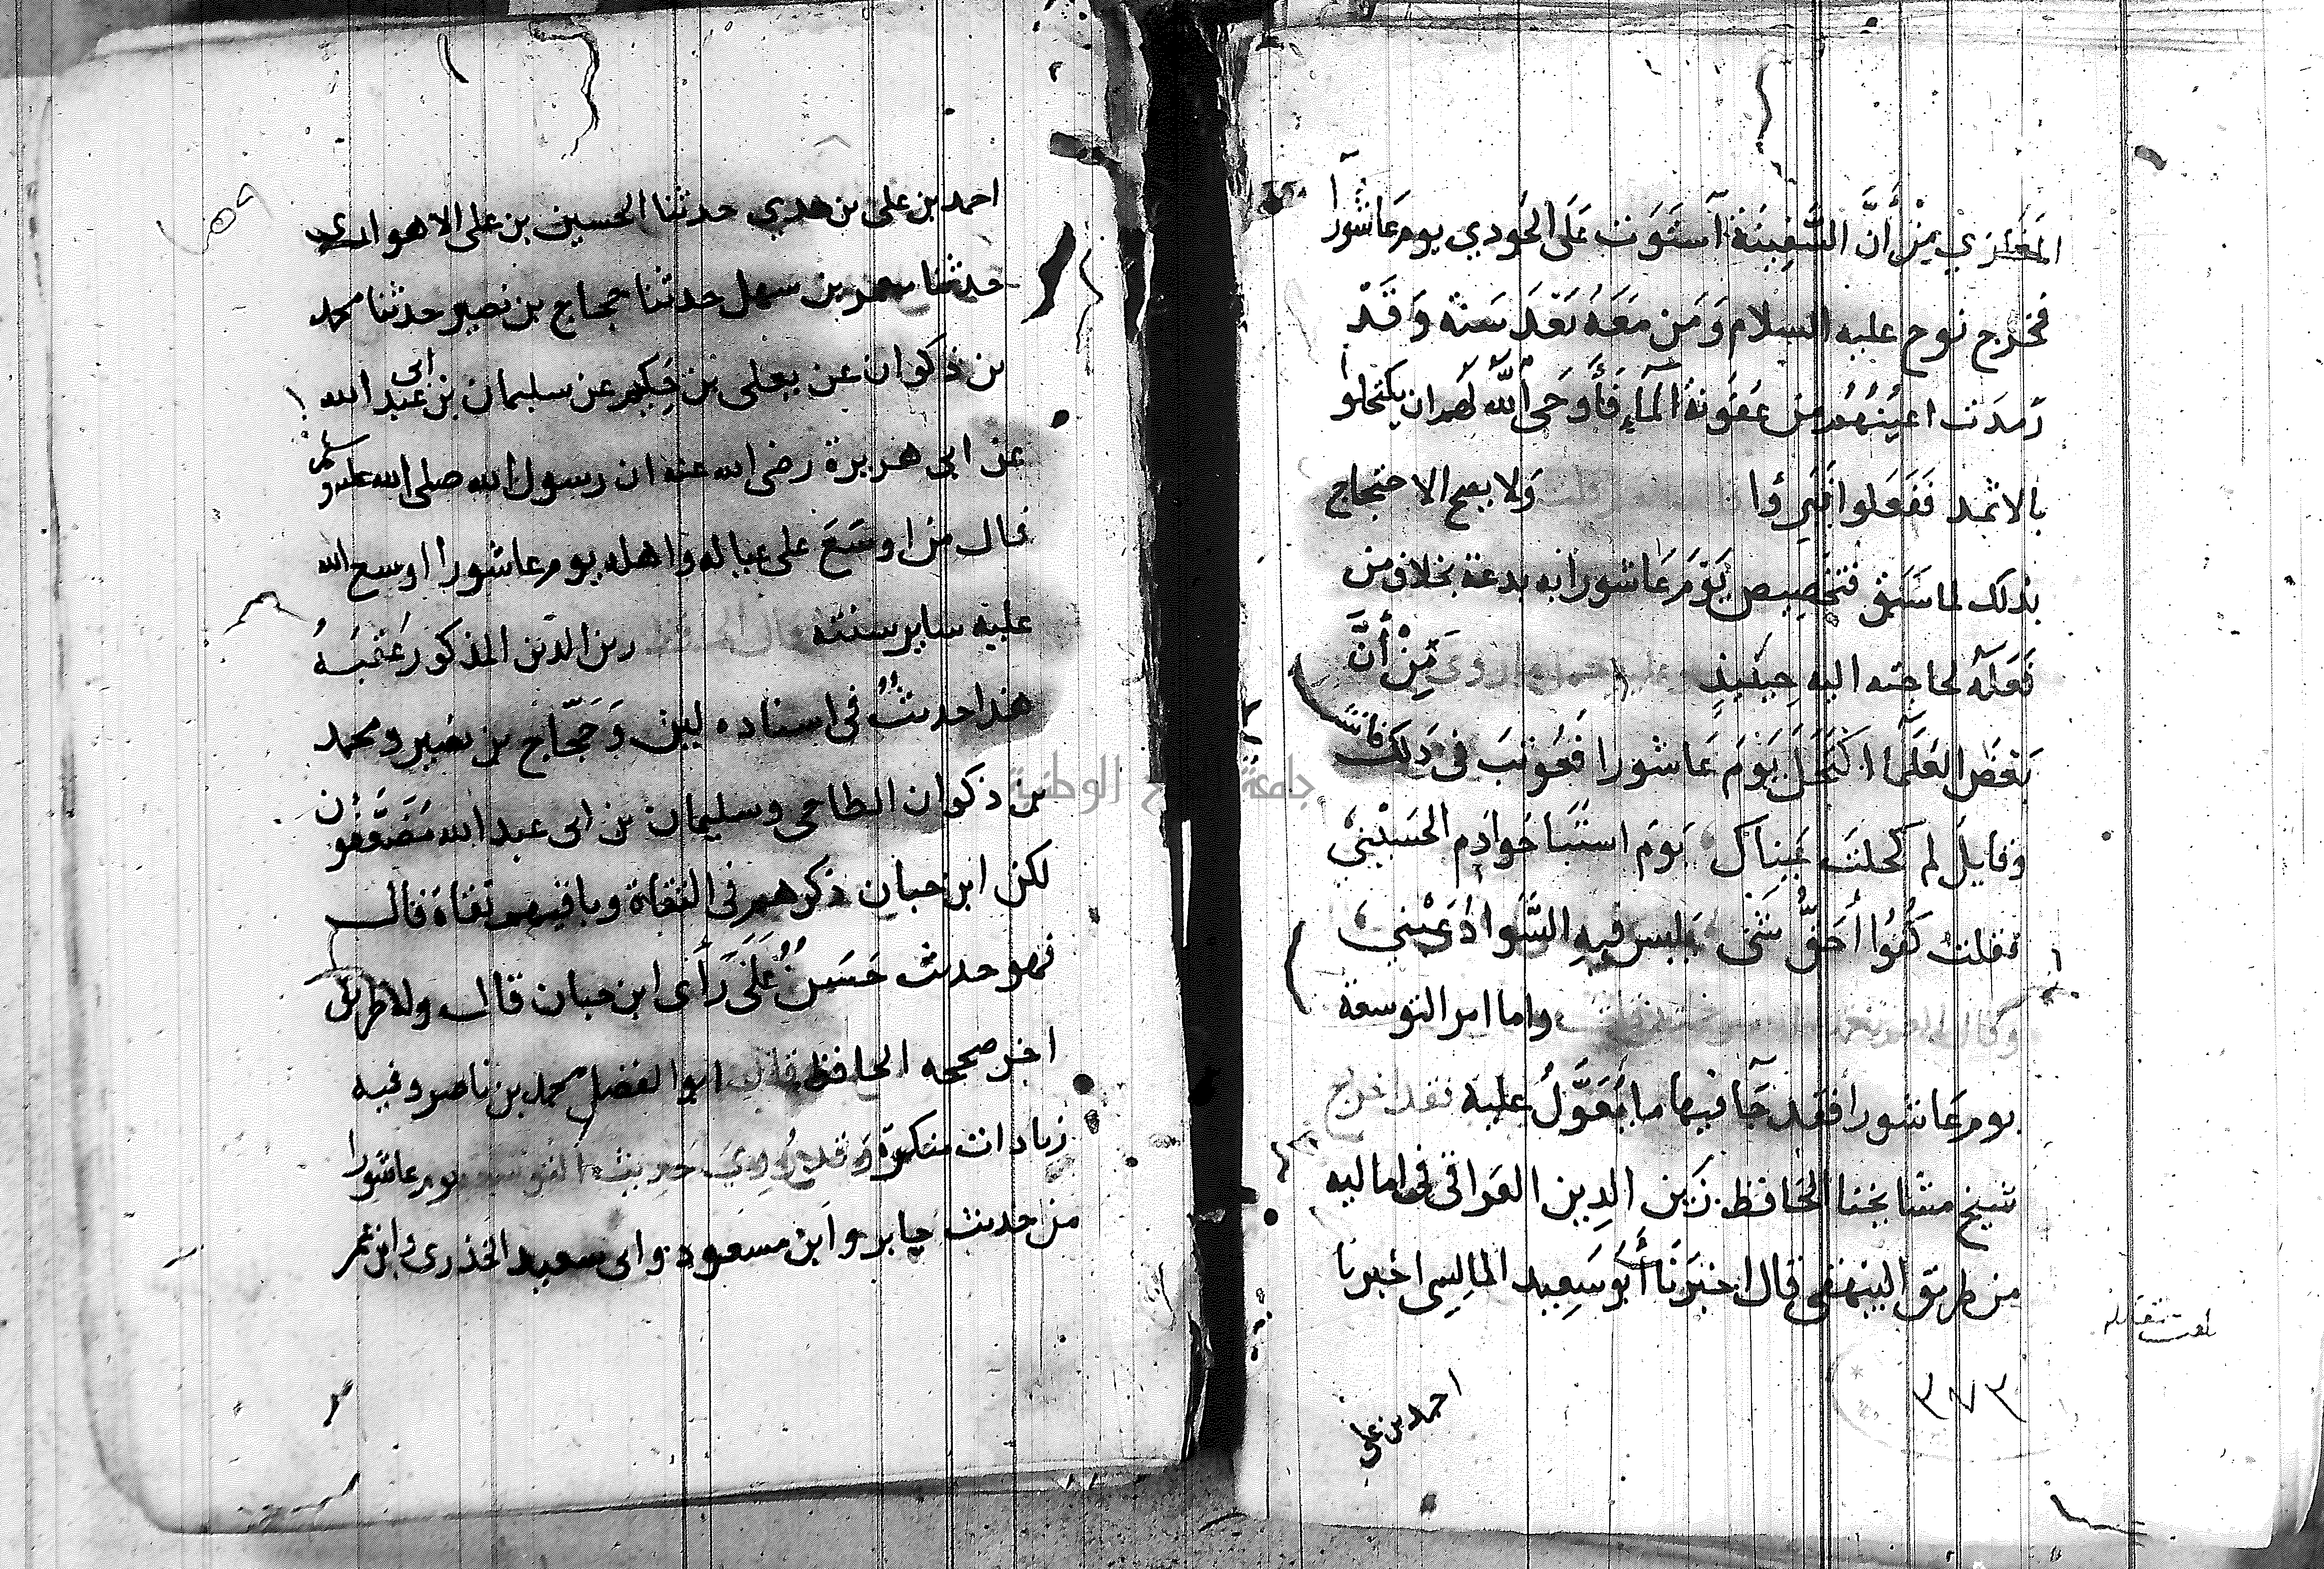 المغازي مِنْ أَنَّ السَّفِينَةَ آسْتَوَت عَلَى الجُودي يوم عَاشُورآ
فخرج نوح عليه السلام وَمَن مَعَهُ بَعْدَ سَنة وَقَدْ
رَمدَت اعيُنُهُم من عفونة المآءِ فَأَوحَى اللَّه لَهم ان يكتحلوا
بالاثمد ففعلوا فَبَرِؤا ولا يصح الاحتجاج
بذلك لما سَبَق فتخصِيص يَوْمَ عَاشورا به بدعة بخلاف من
فَعَلَهُ لحاجته اليه حِينَيِذٍ روى مِنْ أَنَّ
بَعْضَ العُلَمَآ اكْتَحَلَ يَوْمَ عَاشورا فَعُوتبَ في ذَلكَ فانشد
وقايل لم كحلت عيناك يَومَ استَبَا حوا دم الحسَيْنِي
فقلت كُفُوُا أحَقُّ شَىْ يلبس فيهِ السَّوادُ عَيْنِي
واما امر التوسعة
يوم عَاشورا فقد جَآ فيها ما يُعَوَّلُ عليه فقد اخرج
شيخ مشايخنا الحَافظ زَين الدِين العراقى فى اماليه
من طريق البيهقى قال اخبَرَنَا أبو سَعِيد الماليسي اخبرنا
احمد بن علي
٣٧٣
احمد بن على بن هدي حدثنا الحسين بن على الاهوازي
حدثنا معمر بن سهل حدثنا حجاج بن نصير حدثنا محمد
بن ذكوان عن يعلى بن حَكِيم عن سليمان بن ابى عبد الله
عن ابى هريرة رضى الله عنه ان رسول الله صلى الله عليه وسلم
قال من اوسَعَ على عياله واهله يوم عاشورا اوسع الله
عليه ساير سنته زين الدين المذكور عَقبَهُ
هذا حديثٌ فى اسناده لين وَحَجّاج بن نصير ومحمد
بن ذكوان الطاحى وسليمان بن ابى عبد الله مُضَعَّفُون
لكن ابن حبان ذكرهم فى الثقاة وباقيهم ثقاة قال
فهو حديث حَسَنٌ عَلَى رَأى ابن حبان قال وله طريق
اخر صححه الحافظ ابو الفضل محمد بن ناصر وفيه
زيادات منكرة وَقد رُوِيَ حَدِيث التوسعة يوم عاشورا
من حديث جابر وابن مسعود وابى سعيد الخذرى وابن عمر